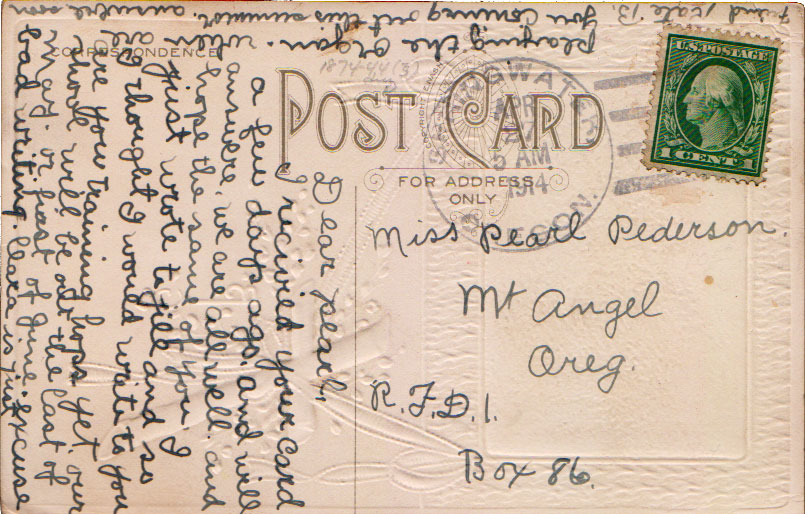 CORRESPONDENCE
POST CARD
FOR ADDRESS
ONLY
U.S. POSTAGE
1 CENT 1
SPRINGWATER
APR
27
5 AM
1914
OREGON.
Dear pearl,
I recivied your card
a few days ago. and will
answere. we are all well. and
hope the same of you. I
just wrote to and so
I thought I would write to you
are you training hops yet. our
school will be out the last of
may. or first of June. excuse
bad writing. Clara is just
playing the organ. when are
you coming out this summer. answere soon
Friend Kate B.
Miss Pearl Pederson.
Mt Angel
Oreg.
R.F.D. 1.
Box 86.